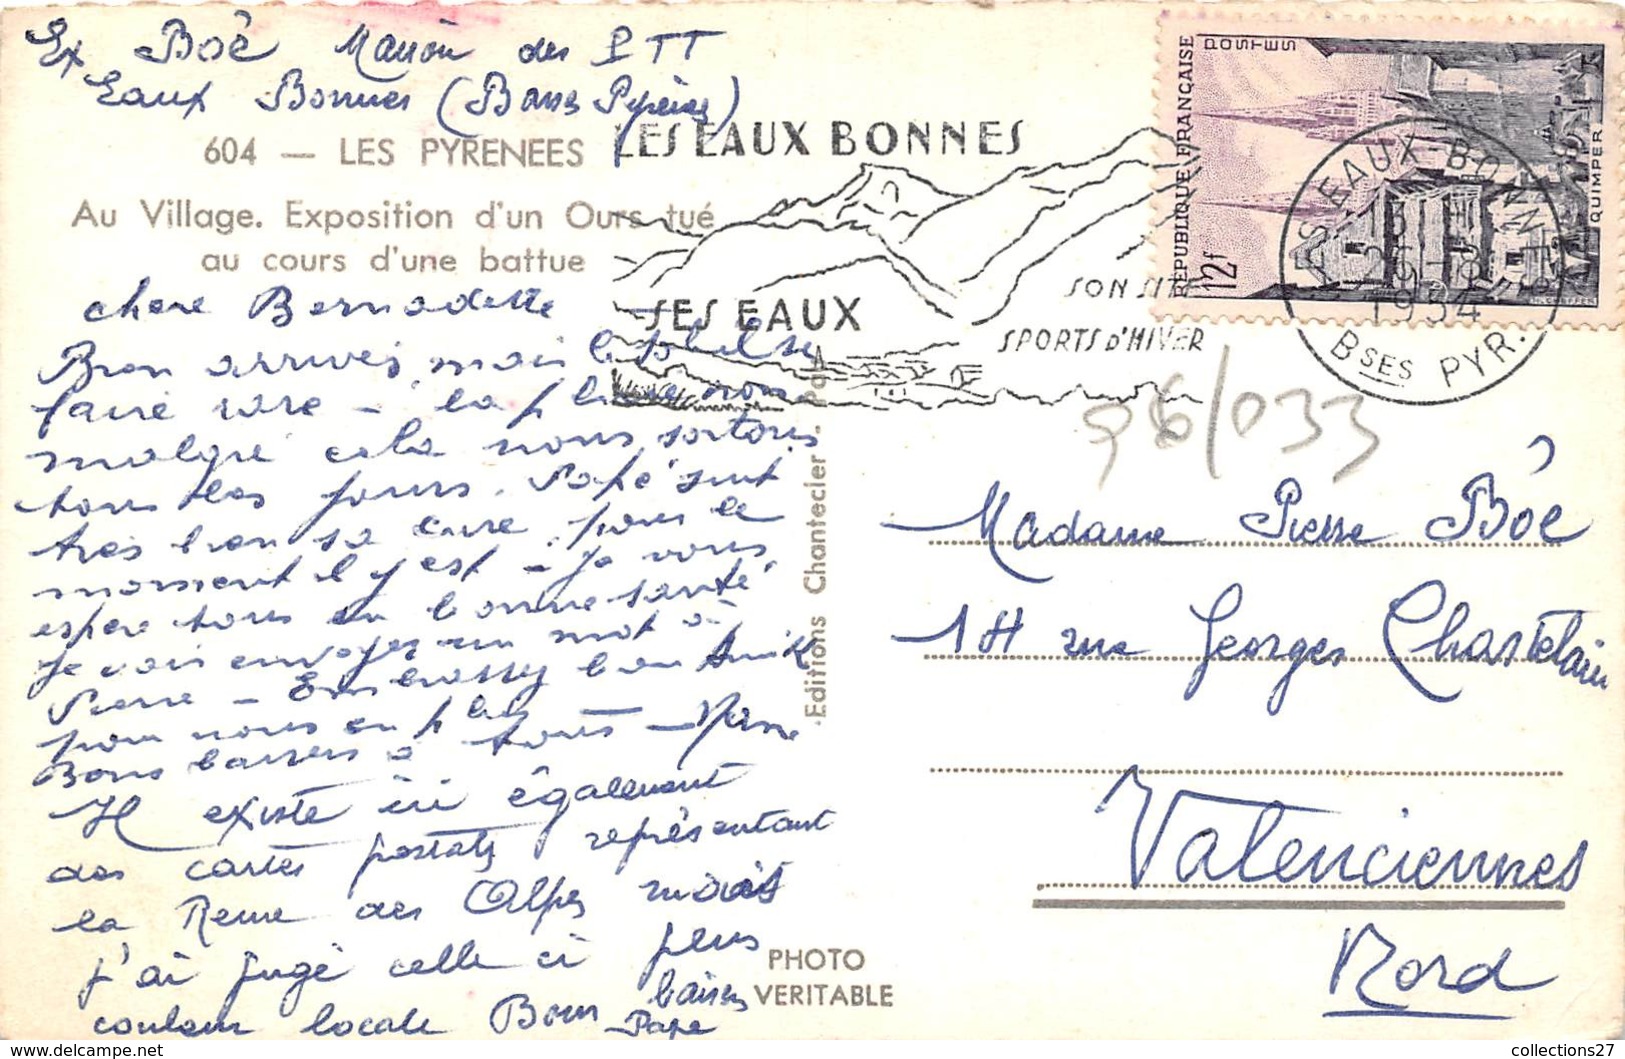 Ex Boë Maison des PTT
Eaux Bonnes (Basses Pyrénées)
604 — LES PYRENEES
Au Village. Exposition d'un Ours tué
au cours d'une battue
chere Bernadette
Bien arrivés, mais le soleil se
faire rare - la pluie non
malgré cela nous sortons
tous les jours. Papé suit
très bien sa cure pour le
moment il y est - Je vous
espere tous en bonne santé
Je vais envoyer un mot à
Pierre - Embrassez bien
pour nous en plus
Bons baisers à tous -
Il existe ici également
des cartes postales représentant
la Reine des Alpes mais
j'ai jugé celle ci plus
couleur locale Bons baisers
Pape
LES EAUX BONNES
SES EAUX
SON SITE
SPORTS D'HIVER
RÉPUBLIQUE FRANÇAISE
POSTES
12f
QUIMPER
LES EAUX-BONNES
1954
BSES PYR.
96/033
Editions Chantecler - Pau
Madame Pierre Boë
14 rue Georges Chastelain
Valenciennes
Nord
PHOTO
VERITABLE
collections27